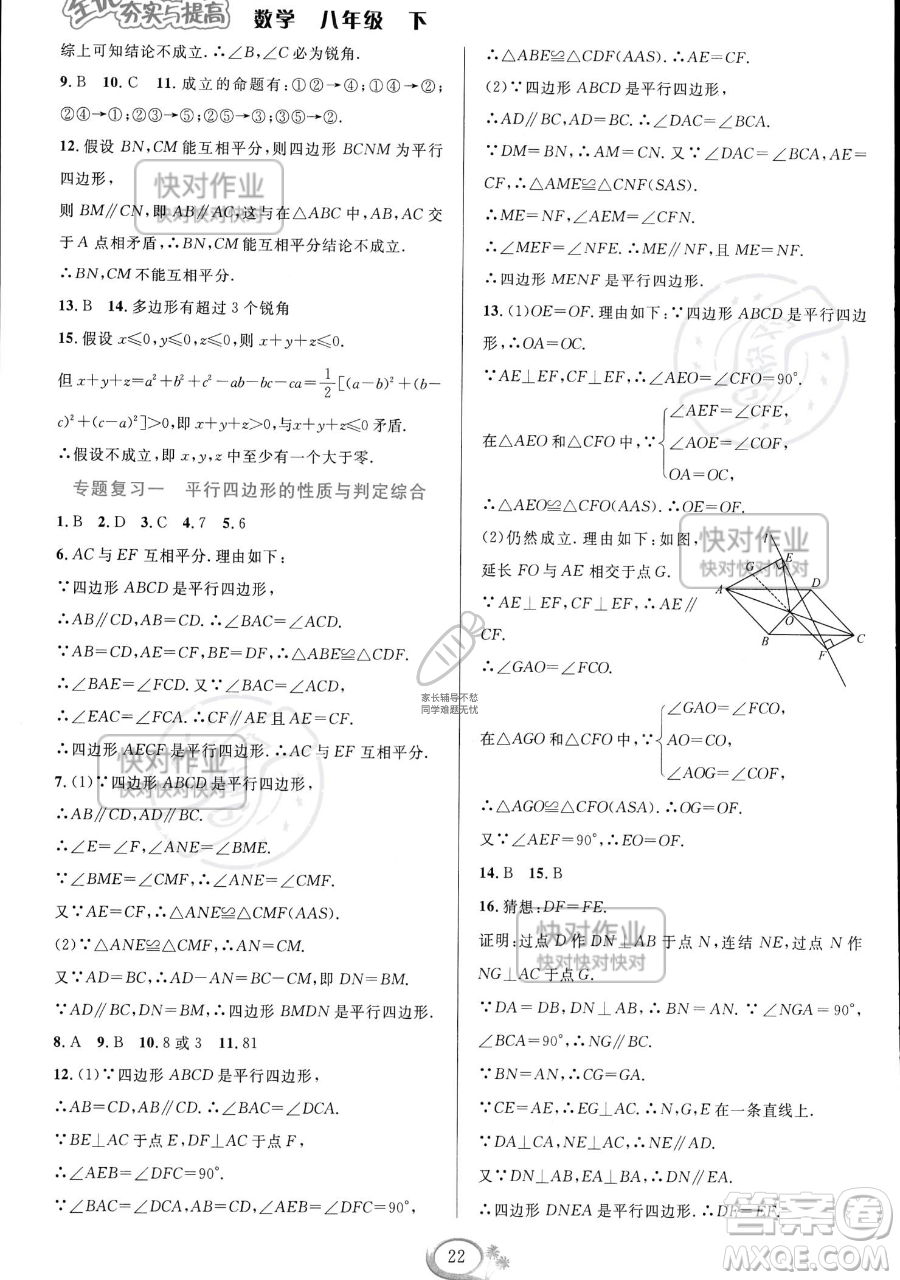 全优
夯实与提高
数学 八年级 下
综上可知结论不成立.∴∠B,∠C 必为锐角.
9.B 10.C 11.成立的命题有:①②→④;①④→②;
②④→①;②⑤→③;③⑤→②;②③→⑤.
12.假设 BN,CM 能互相平分,则四边形 BCNM 为平行
四边形,
则 BM∥CN,即 AB∥AC.这与在△ABC 中,AB,AC 交
于 A 点相矛盾,∴BN,CM 能互相平分结论不成立.
∴BN,CM 不能互相平分.
13.B 14.多边形有超过 3 个锐角
15.假设 x≤0,y≤0,z≤0,则 x+y+z≤0,
但 x+y+z=a²+b²+c²-ab-bc-ca=1/2[(a-b)²+(b-
c)²+(c-a)²]>0,与 x+y+z≤0 矛盾.
∴假设不成立,即 x,y,z 中至少有一个大于零.
专题复习一 平行四边形的性质与判定综合
1.B 2.D 3.C 4.7 5.6
6.AC 与 EF 互相平分.理由如下:
∵四边形 ABCD 是平行四边形,
∴AB∥CD,AB=CD.∴∠BAC=∠ACD.
∵AB∥CD,AB=CD,BE=DF.∴△ABE≌△CDF.
∴∠BAE=∠FCD.又∵∠BAC=∠ACD,
∴∠EAC=∠FCA.∴CF∥AE.又∵AE=CF,
∴四边形 AECF 是平行四边形.∴AC 与 EF 互相平分.
7.(1)∵四边形 ABCD 是平行四边形,
∴AB∥CD,AD∥BC.
∴∠E=∠F,∠ANE=∠BME.
∵∠BME=∠CMF,∴∠ANE=∠CMF.
又∵AE=CF,∴△ANE≌△CMF(AAS).
(2)∵△ANE≌△CMF,∴AN=CM.
又∵AD=BC,∴AD-AN=BC-CM,即 DN=BM.
∵AD∥BC,DN=BM,∴四边形 BMDN 是平行四边形.
8.A 9.B 10.8 或 3 11.81
12.(1)∵四边形 ABCD 是平行四边形,
∴AB=CD,AB∥CD.∴∠BAC=∠DCA.
∵BE⊥AC 于点 E,DF⊥AC 于点 F,
∴∠AEB=∠DFC=90°.
∵∠BAC=∠DCA,AB=CD,∠AEB=∠DFC,
∴△ABE≌△CDF(AAS).∴AE=CF.
(2)∵四边形 ABCD 是平行四边形,
∴AD∥BC,AD=BC.∴∠DAC=∠BCA.
∵DM=BN,∴AM=CN.又∵∠DAC=∠BCA,AE=
CF,∴△AME≌△CNF(SAS).
∴ME=NF,∠AEM=∠CFN.
∴∠MEF=∠NFE.∴ME∥NF.又∵ME=NF,
∴四边形 MENF 是平行四边形.
13.(1)OE=OF.理由如下:∵四边形 ABCD 是平行四边
形,∴OA=OC.
∵AE⊥EF,CF⊥EF,∴∠AEO=∠CFO=90°.
∠AEF=∠CFE,
在△AEO 和△CFO 中,∵ ∠AOE=∠COF,
OA=OC.
∴△AEO≌△CFO.∴OE=OF.
(2)仍然成立.理由如下:如图,
延长 FO 与 AE 相交于点 G.
∵AE⊥EF,CF⊥EF,∴AE∥
CF.
∴∠GAO=∠FCO.
∠GAO=∠FCO,
在△AGO 和△CFO 中,∵ AO=CO,
∠AOG=∠COF,
∴△AGO≌△CFO(ASA).∴GO=FO.
又∵∠AEF=90°,∴EO=FO.
l
G
E
A
D
O
B
C
F
14.B 15.B
16.猜想:DF=FE.
证明:过点 D 作 DN⊥AB 于点 N,连结 NE,过点 N 作
NG⊥AC 于点 G.
∵DA=DB,∴DN 平分 AB.∵∠NGA=90°,
∠BCA=90°,∴CG=GA.
∵CE=AE,∴N,G,E 在一条直线上.
∵DA⊥CA,∴NE∥DA.
又∵DN⊥AB,EA⊥AB,∴DN∥EA.
∴四边形 DNEA 是平行四边形.∴DF=EF.
22
快对作业
快对快对快对
快对作业
快对快对快对
快对作业
快对快对快对
快对作业
快对快对快对
家长辅导不愁
同学难题无忧
答案圈
MXQE.COM